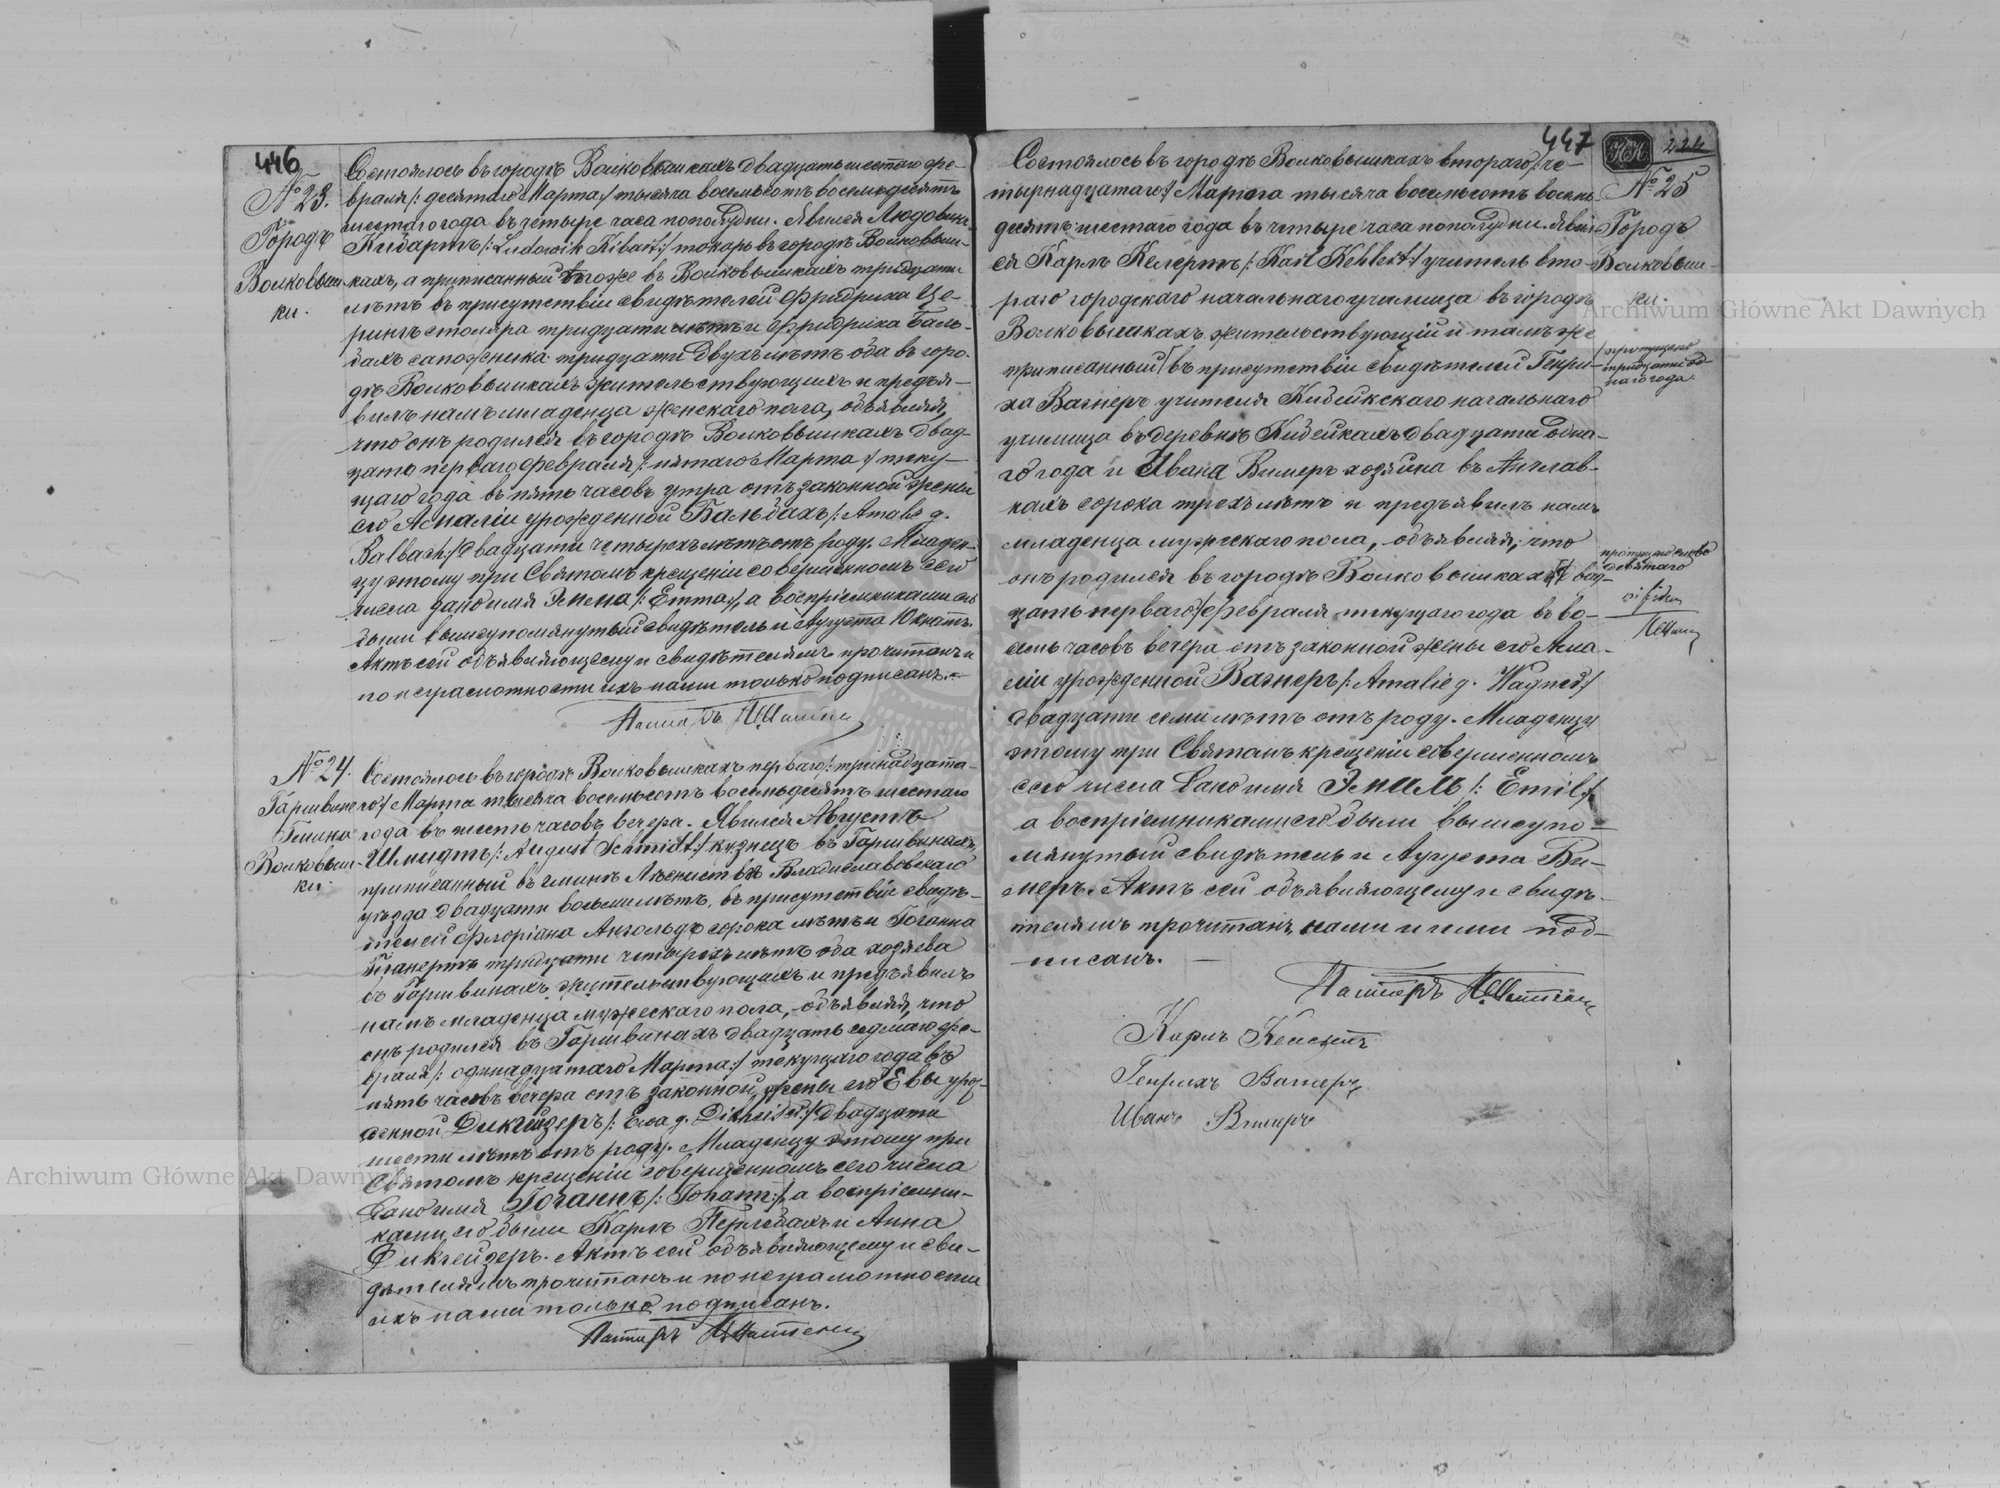 446
№ 23.
Городъ
Волковыш-
ки.
Состоялось въ городѣ Волковышкахъ двадцать шестаго фе-
враля /: десятаго Марта :/ тысяча восемьсотъ восемьдесятъ
шестаго года въ четыре часа пополудни. Явился Людовикъ
Кибартъ /: Ludowik Kibart :/ токарь въ городѣ Волковыш-
кахъ, а приписанный тоже въ Волковышкахъ тридцати
лѣтъ въ присутствіи свидѣтелей Фридриха Це-
рингъ столяра тридцати лѣтъ и Фридриха Баль-
бахъ сапожника тридцати двухъ лѣтъ оба въ горо-
дѣ Волковышкахъ жительствующихъ и предъя-
вилъ намъ младенца женскаго пола, объявляя,
что онъ родился въ городѣ Волковышкахъ двад-
цать перваго февраля /: пятаго Марта :/ теку-
щаго года въ пять часовъ утра отъ законной жены
его Амаліи урожденной Бальбахъ /: Amalie g.
Balbach :/ двадцати четырехъ лѣтъ отъ роду. Младен-
цу этому при Святомъ крещеніи совершенномъ сего
числа дано имя Эмма /: Emma :/, а воспріемниками его
были вышеупомянутый свидѣтель и Аугуста Юкнатъ.
Актъ сей объявляющему и свидѣтелямъ прочитанъ и
по неграмотности ихъ нами только подписанъ.—
Пасторъ
№ 24.
Гаршвине
Гмина
Волковыш-
ки.
Состоялось въ городѣ Волковышкахъ перваго /: тринадцата-
го :/ Марта тысяча восемьсотъ восемьдесятъ шестаго
года въ шесть часовъ вечера. Явился Августъ
Шмидтъ /: August Schmidt :/ кузнецъ въ Гаршвинахъ,
приписанный въ гминѣ Лѣсниство Владиславовскаго
уѣзда двадцати восьми лѣтъ, въ присутствіи свидѣ-
телей Флоріана Ангольдъ сорока лѣтъ и Іоганна
Планертъ тридцати четырехъ лѣтъ оба хозяева
въ Гаршвинахъ жительствующихъ и предъявилъ
намъ младенца мужескаго пола, объявляя, что
онъ родился въ Гаршвинахъ двадцать седмаго фе-
враля /: одинадцатаго Марта :/ текущаго года въ
пять часовъ вечера отъ законной жены его Евы урож-
денной Дикгейзеръ /: Ewa g. двадцати
шести лѣтъ отъ роду. Младенцу этому при
Святомъ крещеніи совершенномъ сего числа
дано имя Іоганнъ /: Johann :/, а воспріемни-
ками его были Карлъ Перлебахъ и Анна
Дикгейзеръ. Актъ сей объявляющему и сви-
дѣтелямъ прочитанъ и по неграмотности
ихъ нами только подписанъ.
Пасторъ
447
224
№ 25
Городъ
Волковыш-
ки.
Состоялось въ городѣ Волковышкахъ втораго /: че-
тырнадцатаго :/ Марта тысяча восемьсотъ восемь-
десятъ шестаго года въ четыре часа пополудни. Явил-
ся Карлъ Келертъ /: Karl Kehlert :/ учитель вто-
раго городскаго начальнаго училища въ городѣ
Волковышкахъ жительствующій и тамъ же
приписанный въ присутствіи свидѣтелей Генри-
ха Вагнеръ учителя Кибейкскаго начальнаго
училища въ деревнѣ Кибейкахъ двадцати одна-
го года и Ивана Вимеръ хозяина въ Англав-
кахъ сорока трехъ лѣтъ и предъявилъ намъ
младенца мужескаго пола, объявляя, что
онъ родился въ городѣ Волковышкахъ двад-
цать перваго февраля текущаго года въ во-
семь часовъ вечера отъ законной жены его Ама-
ліи урожденной Вагнеръ /: Amalie g. Wagner :/
двадцати семи лѣтъ отъ роду. Младенцу
этому при Святомъ крещеніи совершенномъ
сего числа дано имя Эмиль /: Emil :/
а воспріемниками его были вышеупо-
мянутый свидѣтель и Аугуста Ви-
меръ. Актъ сей объявляющему и свидѣ-
телямъ прочитанъ, нами и ими под-
писанъ. —
пропущено
тридцати од-
наго года.
пропущено слово
девятаго
Пасторъ
Карлъ Келертъ
Генрихъ Вагнеръ
Иванъ Вимеръ
Archiwum Główne Akt Dawnych
Archiwum Główne Akt Dawnych